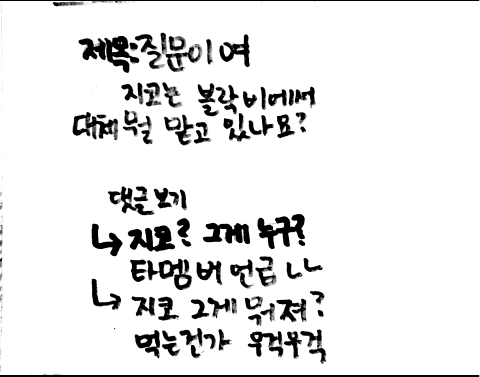 제목:질문이여
지코는 블락비에서
대체 뭘 맡고 있나요?
댓글보기
↳지코? 그게 누구?
타멤버 언급 ㄴㄴ
↳지코 그게 뭐져?
먹는건가 우걱우걱